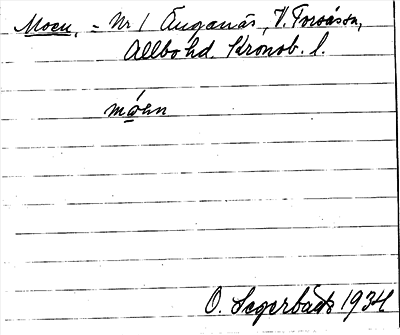 Moen, = Nr 1 Änganäs, V. Torsåssn,
Allbo hd. Kronob. l.
móen
O. Segerbäck 1934